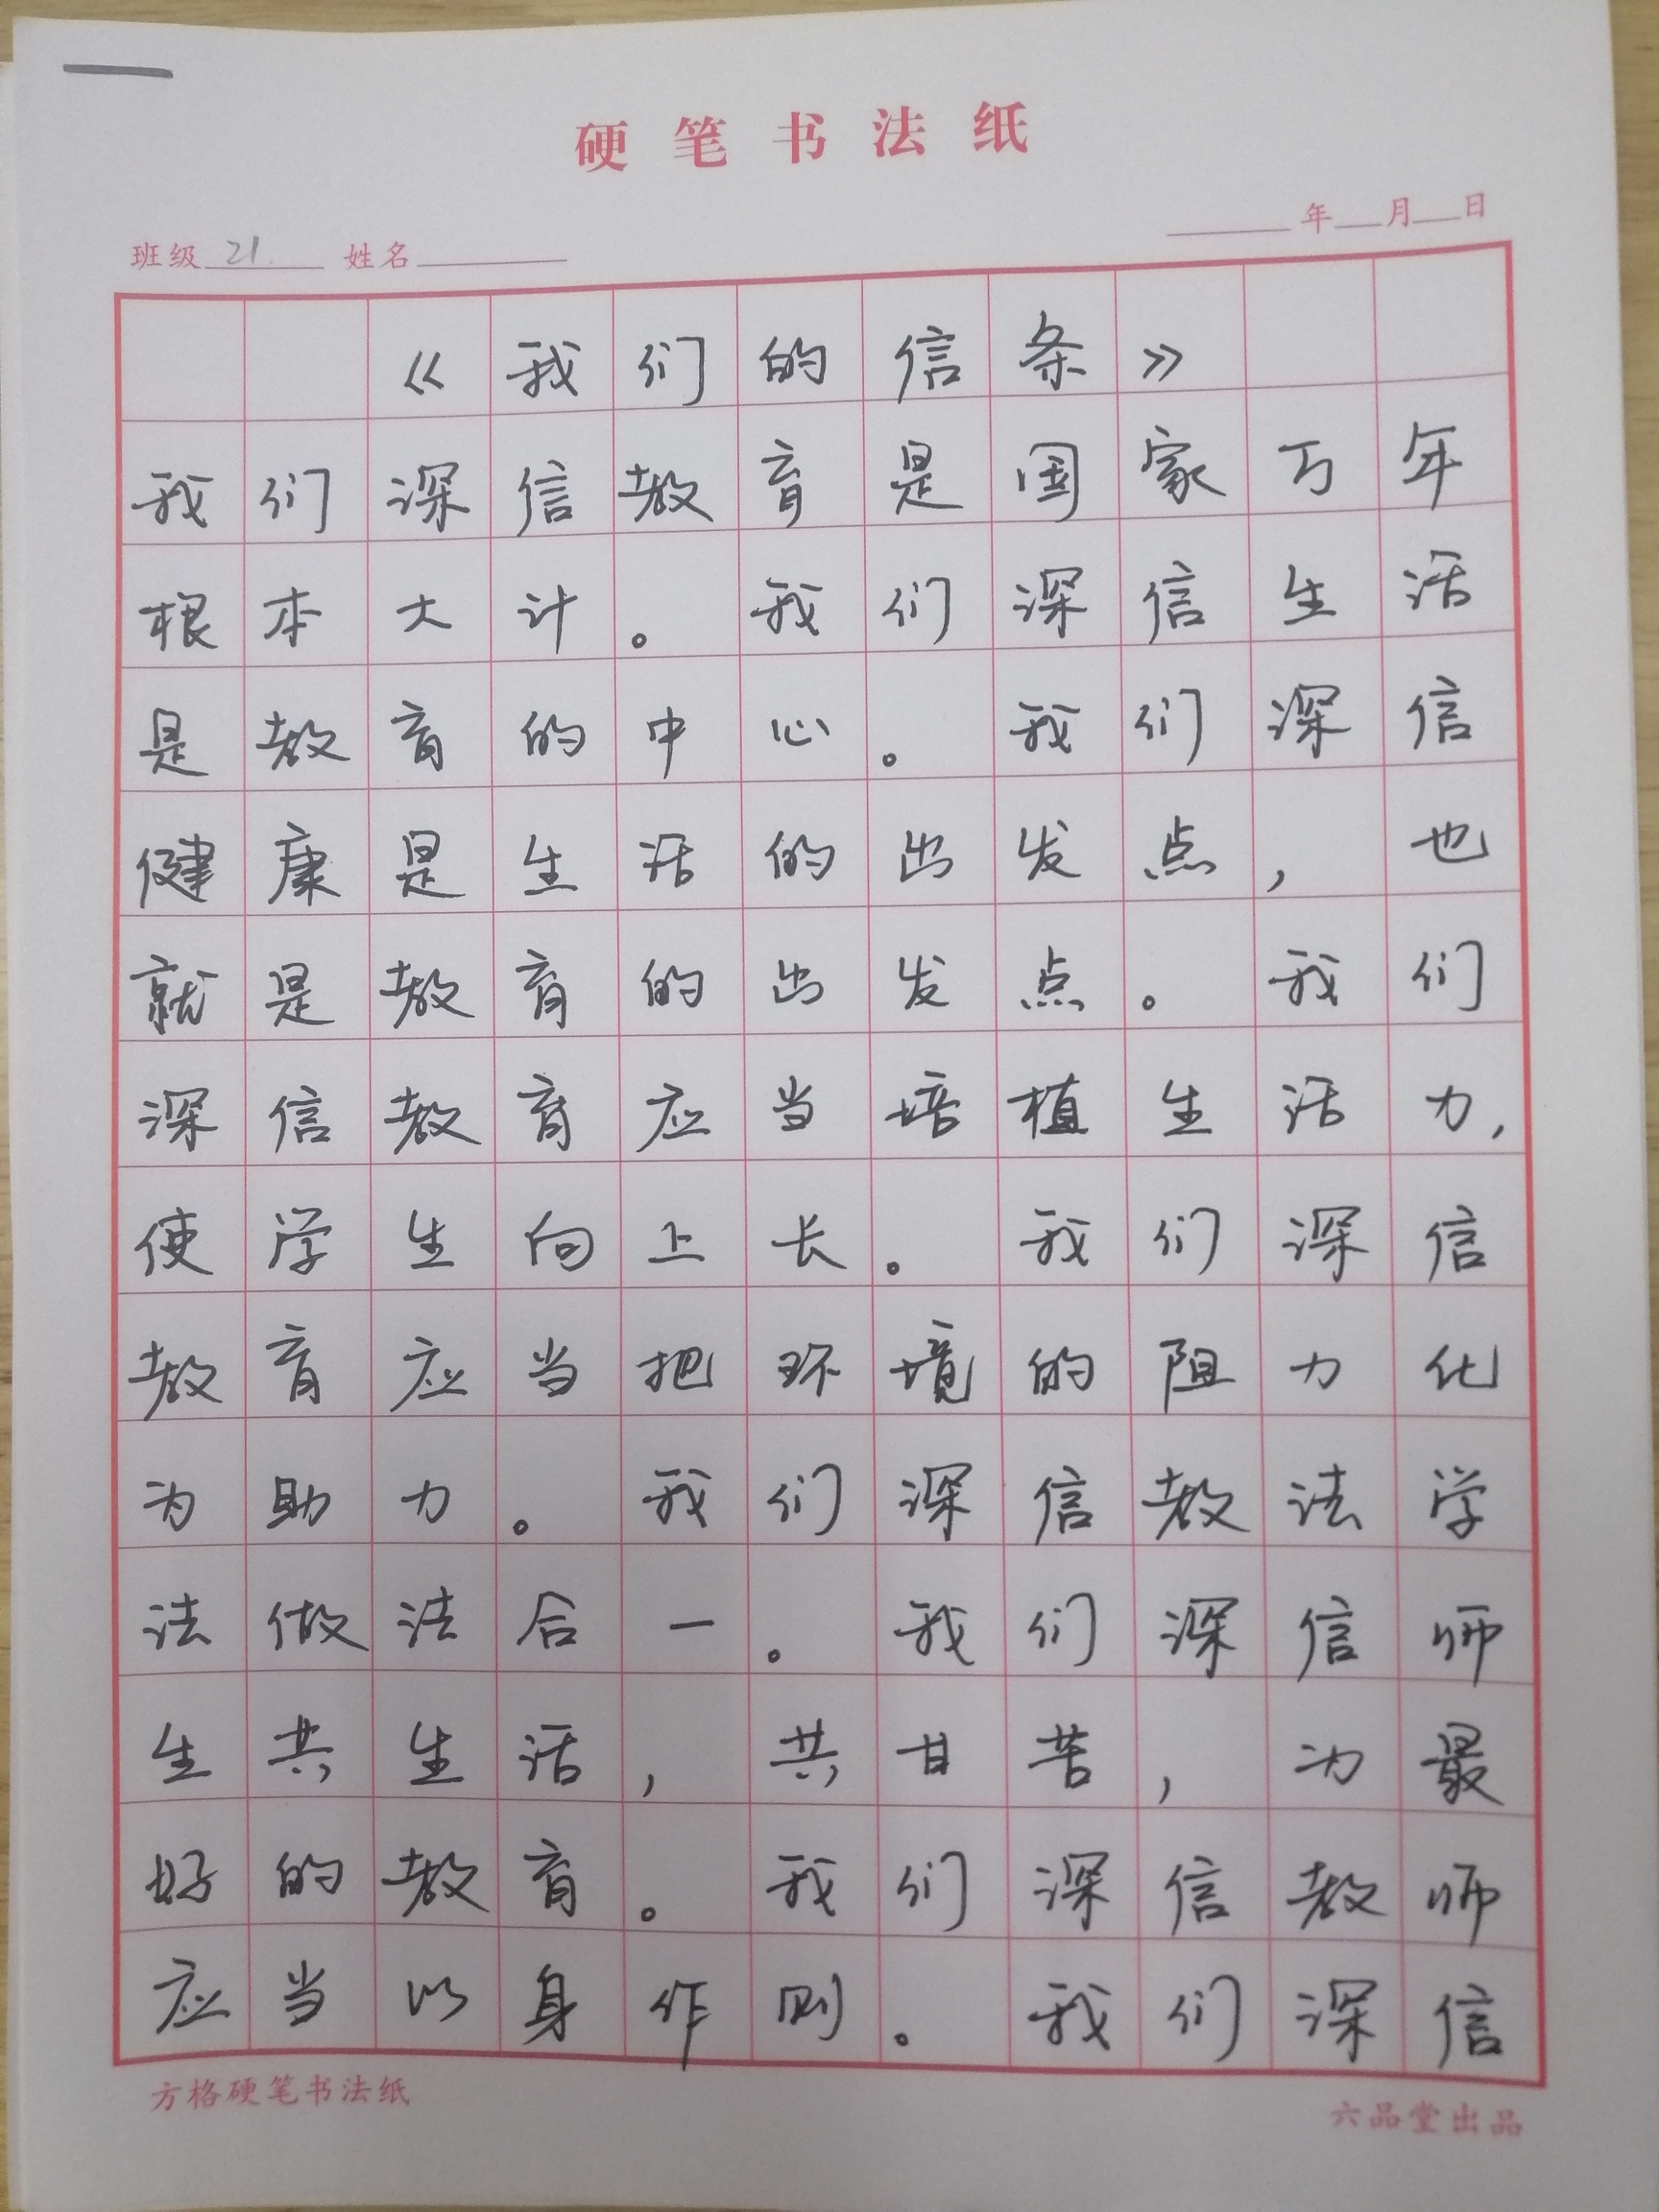 硬笔书法纸
年 月 日
班级 21. 姓名
《我们的信条》
我们深信教育是国家万年
根本大计。我们深信生活
是教育的中心。我们深信
健康是生活的出发点，也
就是教育的出发点。我们
深信教育应当培植生活力，
使学生向上长。我们深信
教育应当把环境的阻力化
为助力。我们深信教法学
法做法合一。我们深信师
生共生活，共甘苦，为最
好的教育。我们深信教师
应当以身作则。我们深信
方格硬笔书法纸
六品堂出品